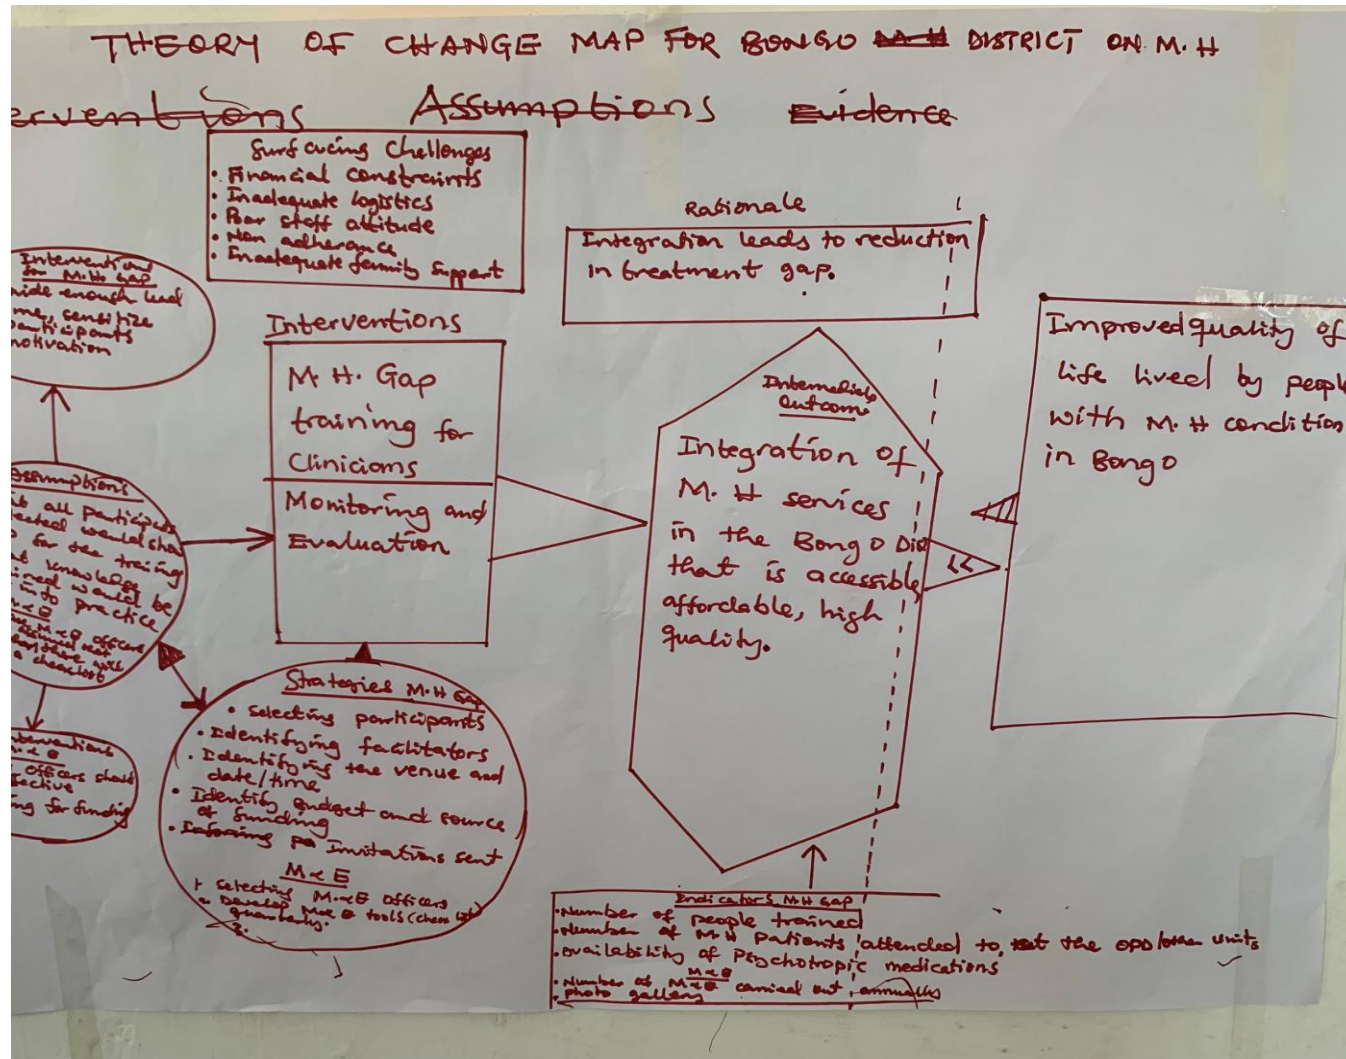 THEORY OF CHANGE MAP FOR BONGO M.H DISTRICT ON M.H
erventions Assumptions Evidence
Surfacing Challenges
• Financial constraints
• Inadequate logistics
• Poor staff attitude
• Non adherance
• Inadequate family support
Rationale
Integration leads to reduction
in treatment gap.
Interventions
for M.H GAP
vide enough lead
me, sensitize
participants
motivation
Interventions
M.H. Gap
training for
Clinicians
Monitoring and
Evaluation
Intermediate
outcome
Integration of
M.H services
in the Bongo Dis
that is accessible,
affordable, high
quality.
Improved quality of
life lived by people
with M.H condition
in Bongo
Assumptions
all participants
would show
for the training
knowledge
ined would be
into practice
M&E
M&E officers
a checklist
Interventions
M&E
officers
ective
ing for funding
Strategies M.H Gap
• Selecting participants
• Identifying facilitators
• Identifying the venue and
date/time
• Identify budget and source
of funding
• Invitations sent
M&E
Selecting M&E officers
Develop M&E tools (check list)
quarterly.
3.
Indicators M.H Gap
• Number of people trained
• Number of M.H patients attended to, at the OPD/other units
• availability of psychotropic medications
• Number of M&E carried out annually
• photo gallery